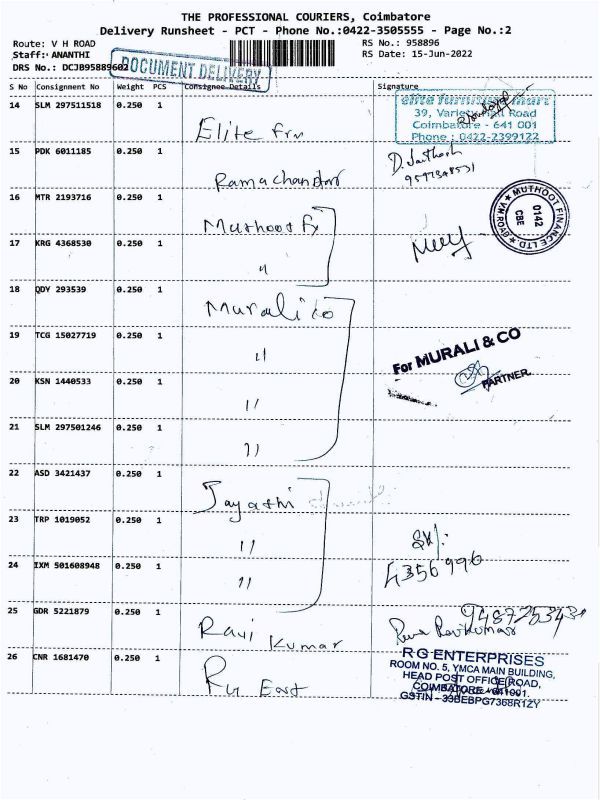 THE PROFESSIONAL COURIERS, Coimbatore
Delivery Runsheet - PCT - Phone No.:0422-3505555 - Page No.:2
Route: V H ROAD
RS No.: 958896
Staff: ANANTHI
RS Date: 15-Jun-2022
DRS No.: DCJB95889602
DOCUMENT DELIVERY
S No Consignment No Weight PCS Consignee Details Signature
14 SLM 297511518 0.250 1
Elite Frn
elite furniture mart
39, Variety Hall Road
Coimbatore - 641 001
Phone : 0422-2399122
15 PDK 6011185 0.250 1
Ramachandar
9597348531
16 MTR 2193716 0.250 1
Muthoot
MUTHOOT FINANCE LTD
VH ROAD
0142
CBE
17 KRG 4368530 0.250 1
"
18 QDY 293539 0.250 1
Murali Co
19 TCG 15027719 0.250 1
"
For MURALI & CO
PARTNER
20 KSN 1440533 0.250 1
"
21 SLM 297501246 0.250 1
"
22 ASD 3421437 0.250 1
Jayathi
23 TRP 1019052 0.250 1
"
24 IXM 501608948 0.250 1
"
4356996
25 GDR 5221879 0.250 1
Ravi Kumar
26 CNR 1681470 0.250 1
RG Ent
R G ENTERPRISES
ROOM NO. 5, YMCA MAIN BUILDING,
HEAD POST OFFICE ROAD,
COIMBATORE - 641001.
GSTIN - 33BEBPG7368R1ZY